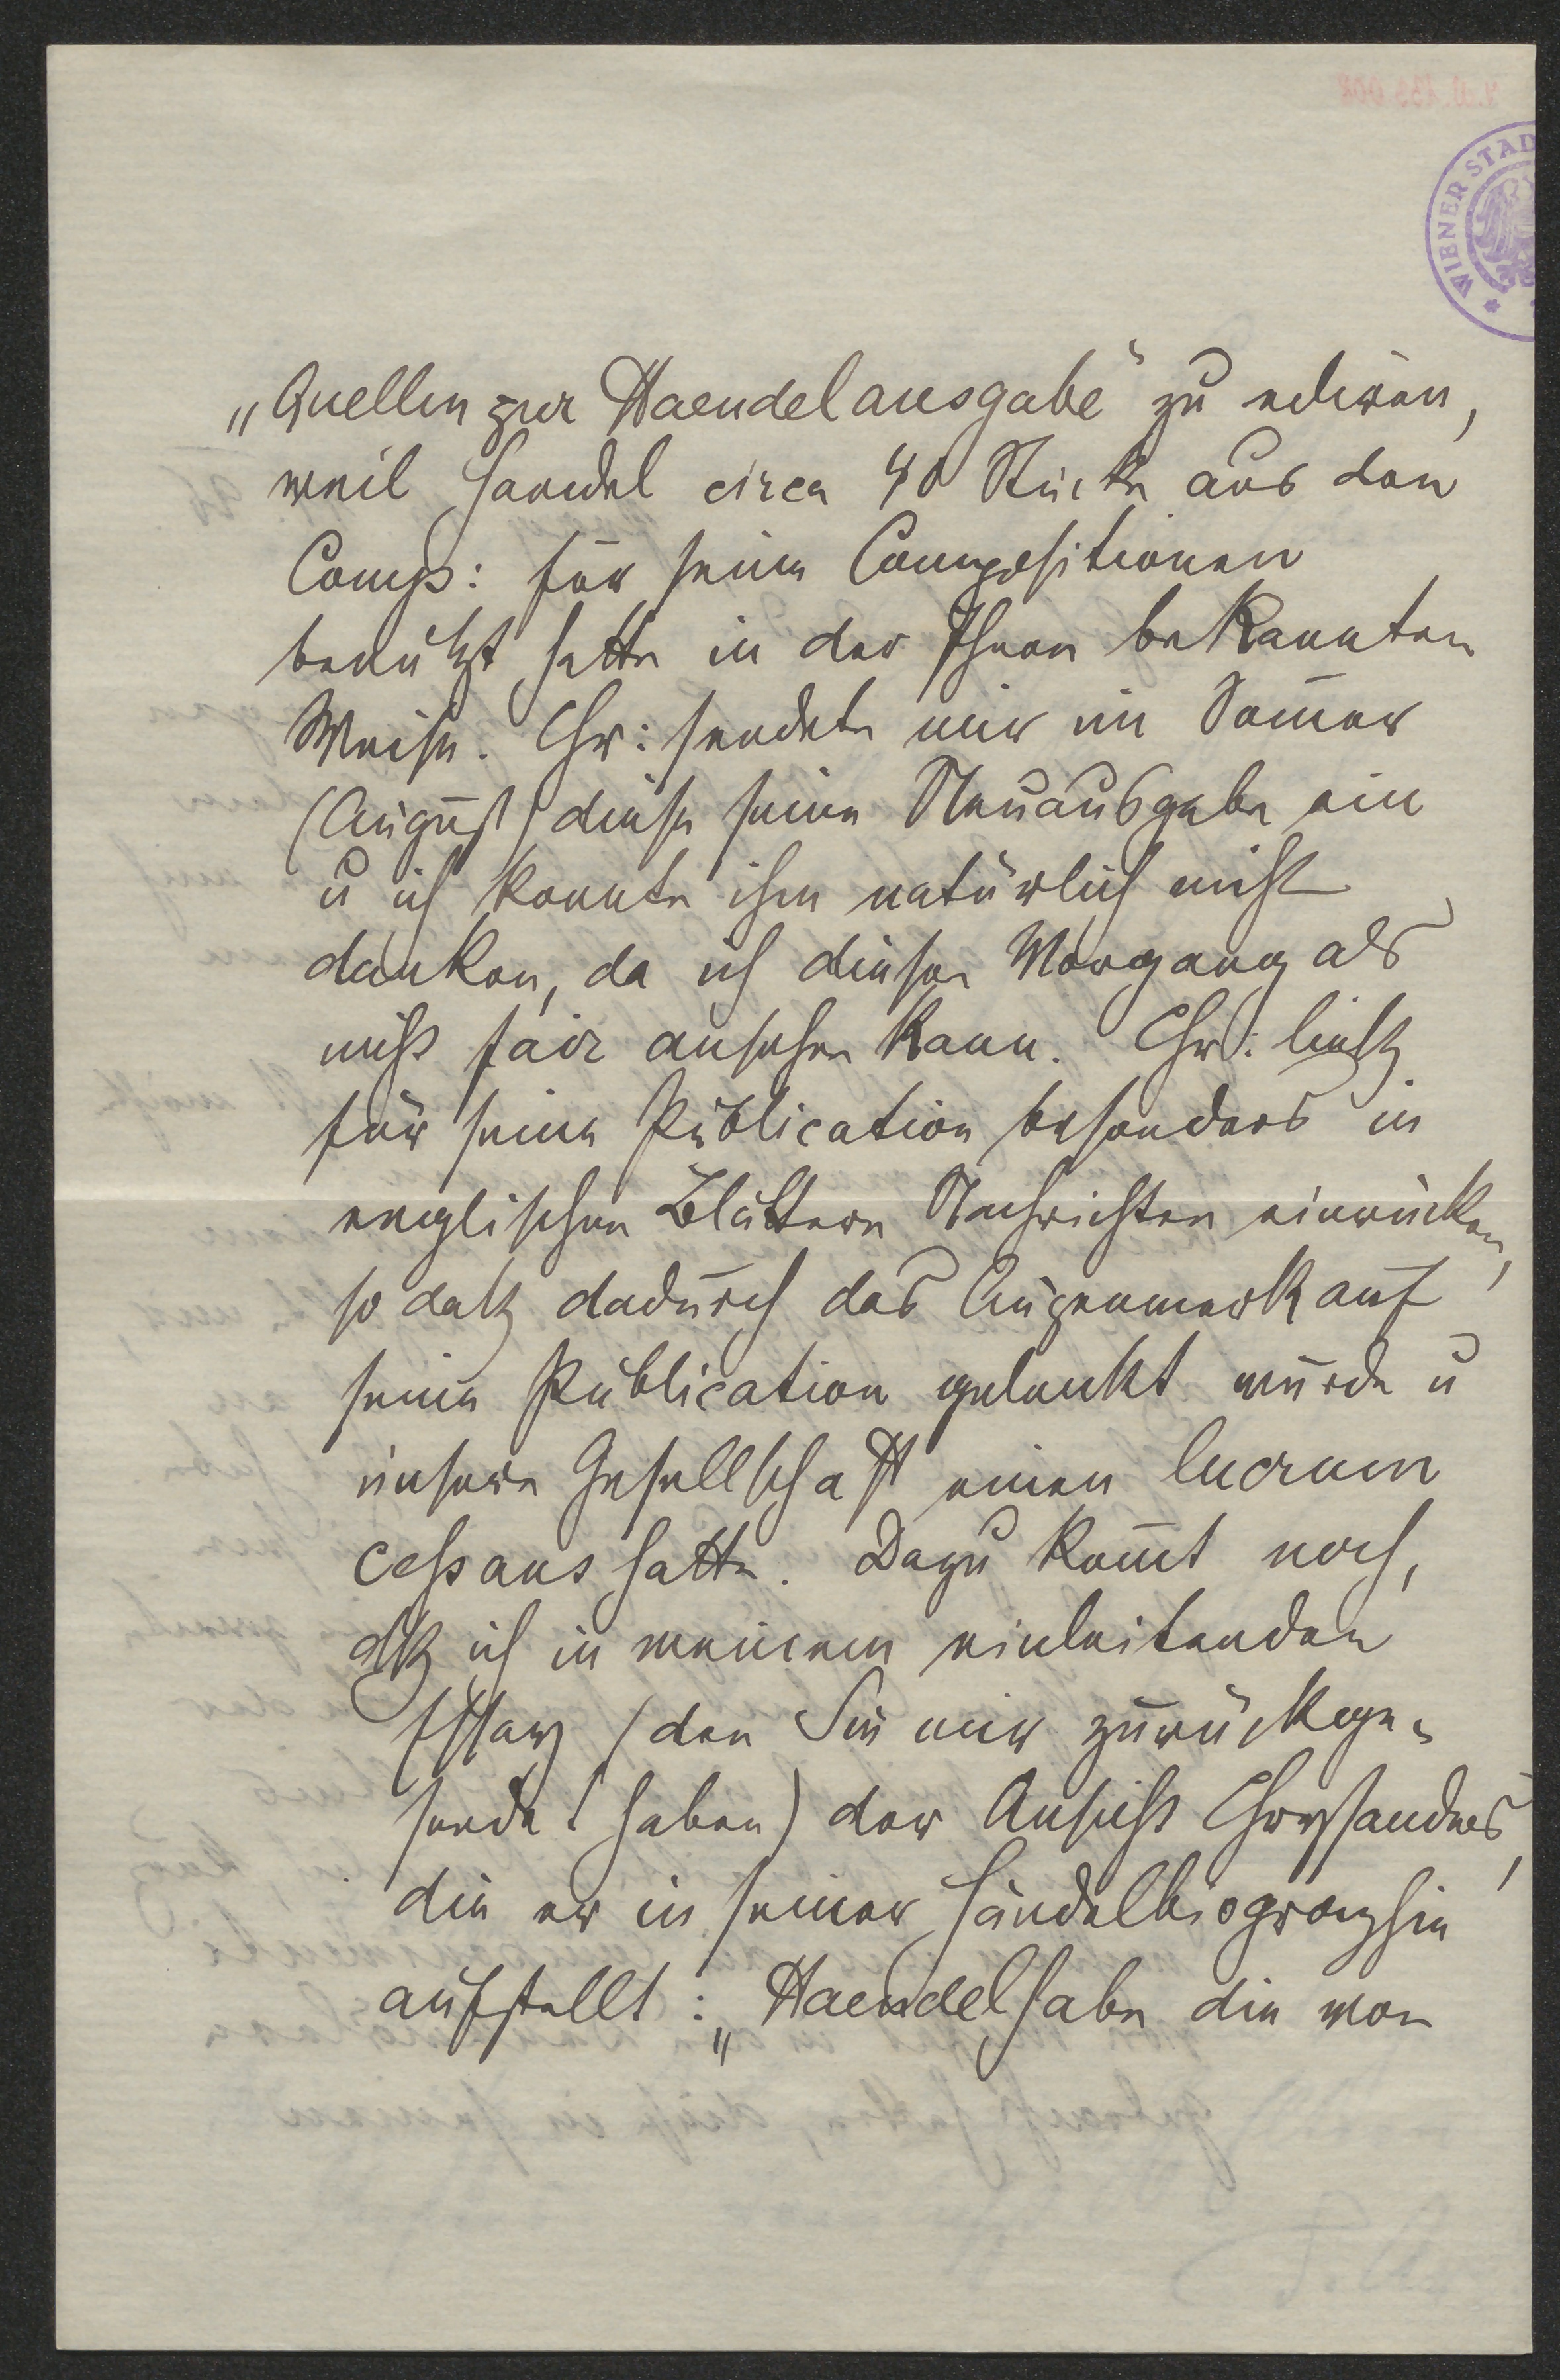 WIENER STAD
„Quellen zur Haendelausgabe“ zu ediren,
weil Haendel circa 40 Stücke aus den
Comp: für seine Compositionen
benützt hatte in der Ihnen bekannten
Weise. Chr: sendete mir im Som̄er
(August) diese seine Neuausgabe ein
u ich konnte ihm natürlich nicht
danken, da ich diesen Vorgang als
nicht fair ansehen kann. Chr: ließ
für seine Publication besonders in
englischen Blättern Nachrichten einrücken,
so daß dadurch das Augenmerk auf
seine Publication gelenkt wurde u
unsere Gesellschaft einen lucrum
cessans hatte. Dazu kom̄t noch,
dß ich in meinem einleitenden
Essay (den Sie mir zurückge-
sendet haben) der Ansicht Chrysanders,
die er in seiner Händelbiographie
aufstellt: „Haendel habe die von